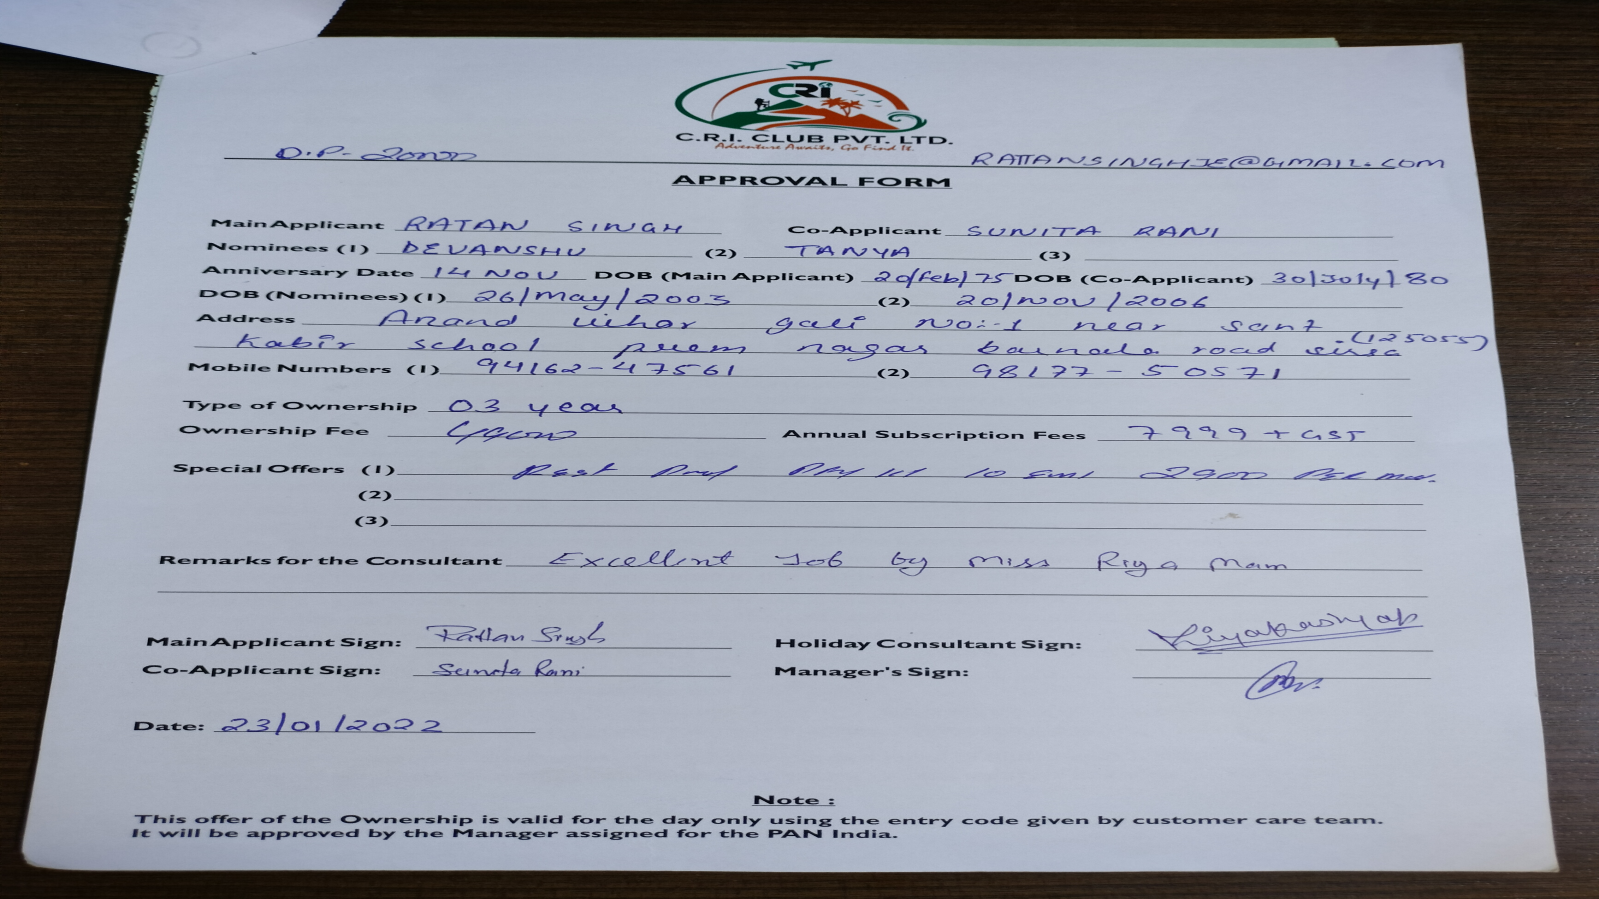 CRi
C.R.I. CLUB PVT. LTD.
Adventure Awaits, Go Find It.
D.P- 20000 RATTANSINGHJE@GMAIL.COM
APPROVAL FORM
Main Applicant RATAN SINGH Co-Applicant SUNITA RANI
Nominees (1) DEVANSHU (2) TANYA (3)
Anniversary Date 14 NOV DOB (Main Applicant) 20/feb/75 DOB (Co-Applicant) 30/July/80
DOB (Nominees) (1) 26/May/2003 (2) 20/NOV/2006
Address Anand vihar gali No:-1 near sant
kabir school prem nagar barnala road sirsa (125055)
Mobile Numbers (1) 94162-47561 (2) 98177-50571
Type of Ownership 03 year
Ownership Fee 49000 Annual Subscription Fees 7999 + GST
Special Offers (1) 10 EMI 2900 Per
(2)
(3)
Remarks for the Consultant Excellent Job by Miss Riya Mam
Main Applicant Sign: Rattan Singh Holiday Consultant Sign: Riyakashyap
Co-Applicant Sign: Sunita Rani Manager's Sign:
Date: 23/01/2022
Note :
This offer of the Ownership is valid for the day only using the entry code given by customer care team.
It will be approved by the Manager assigned for the PAN India.